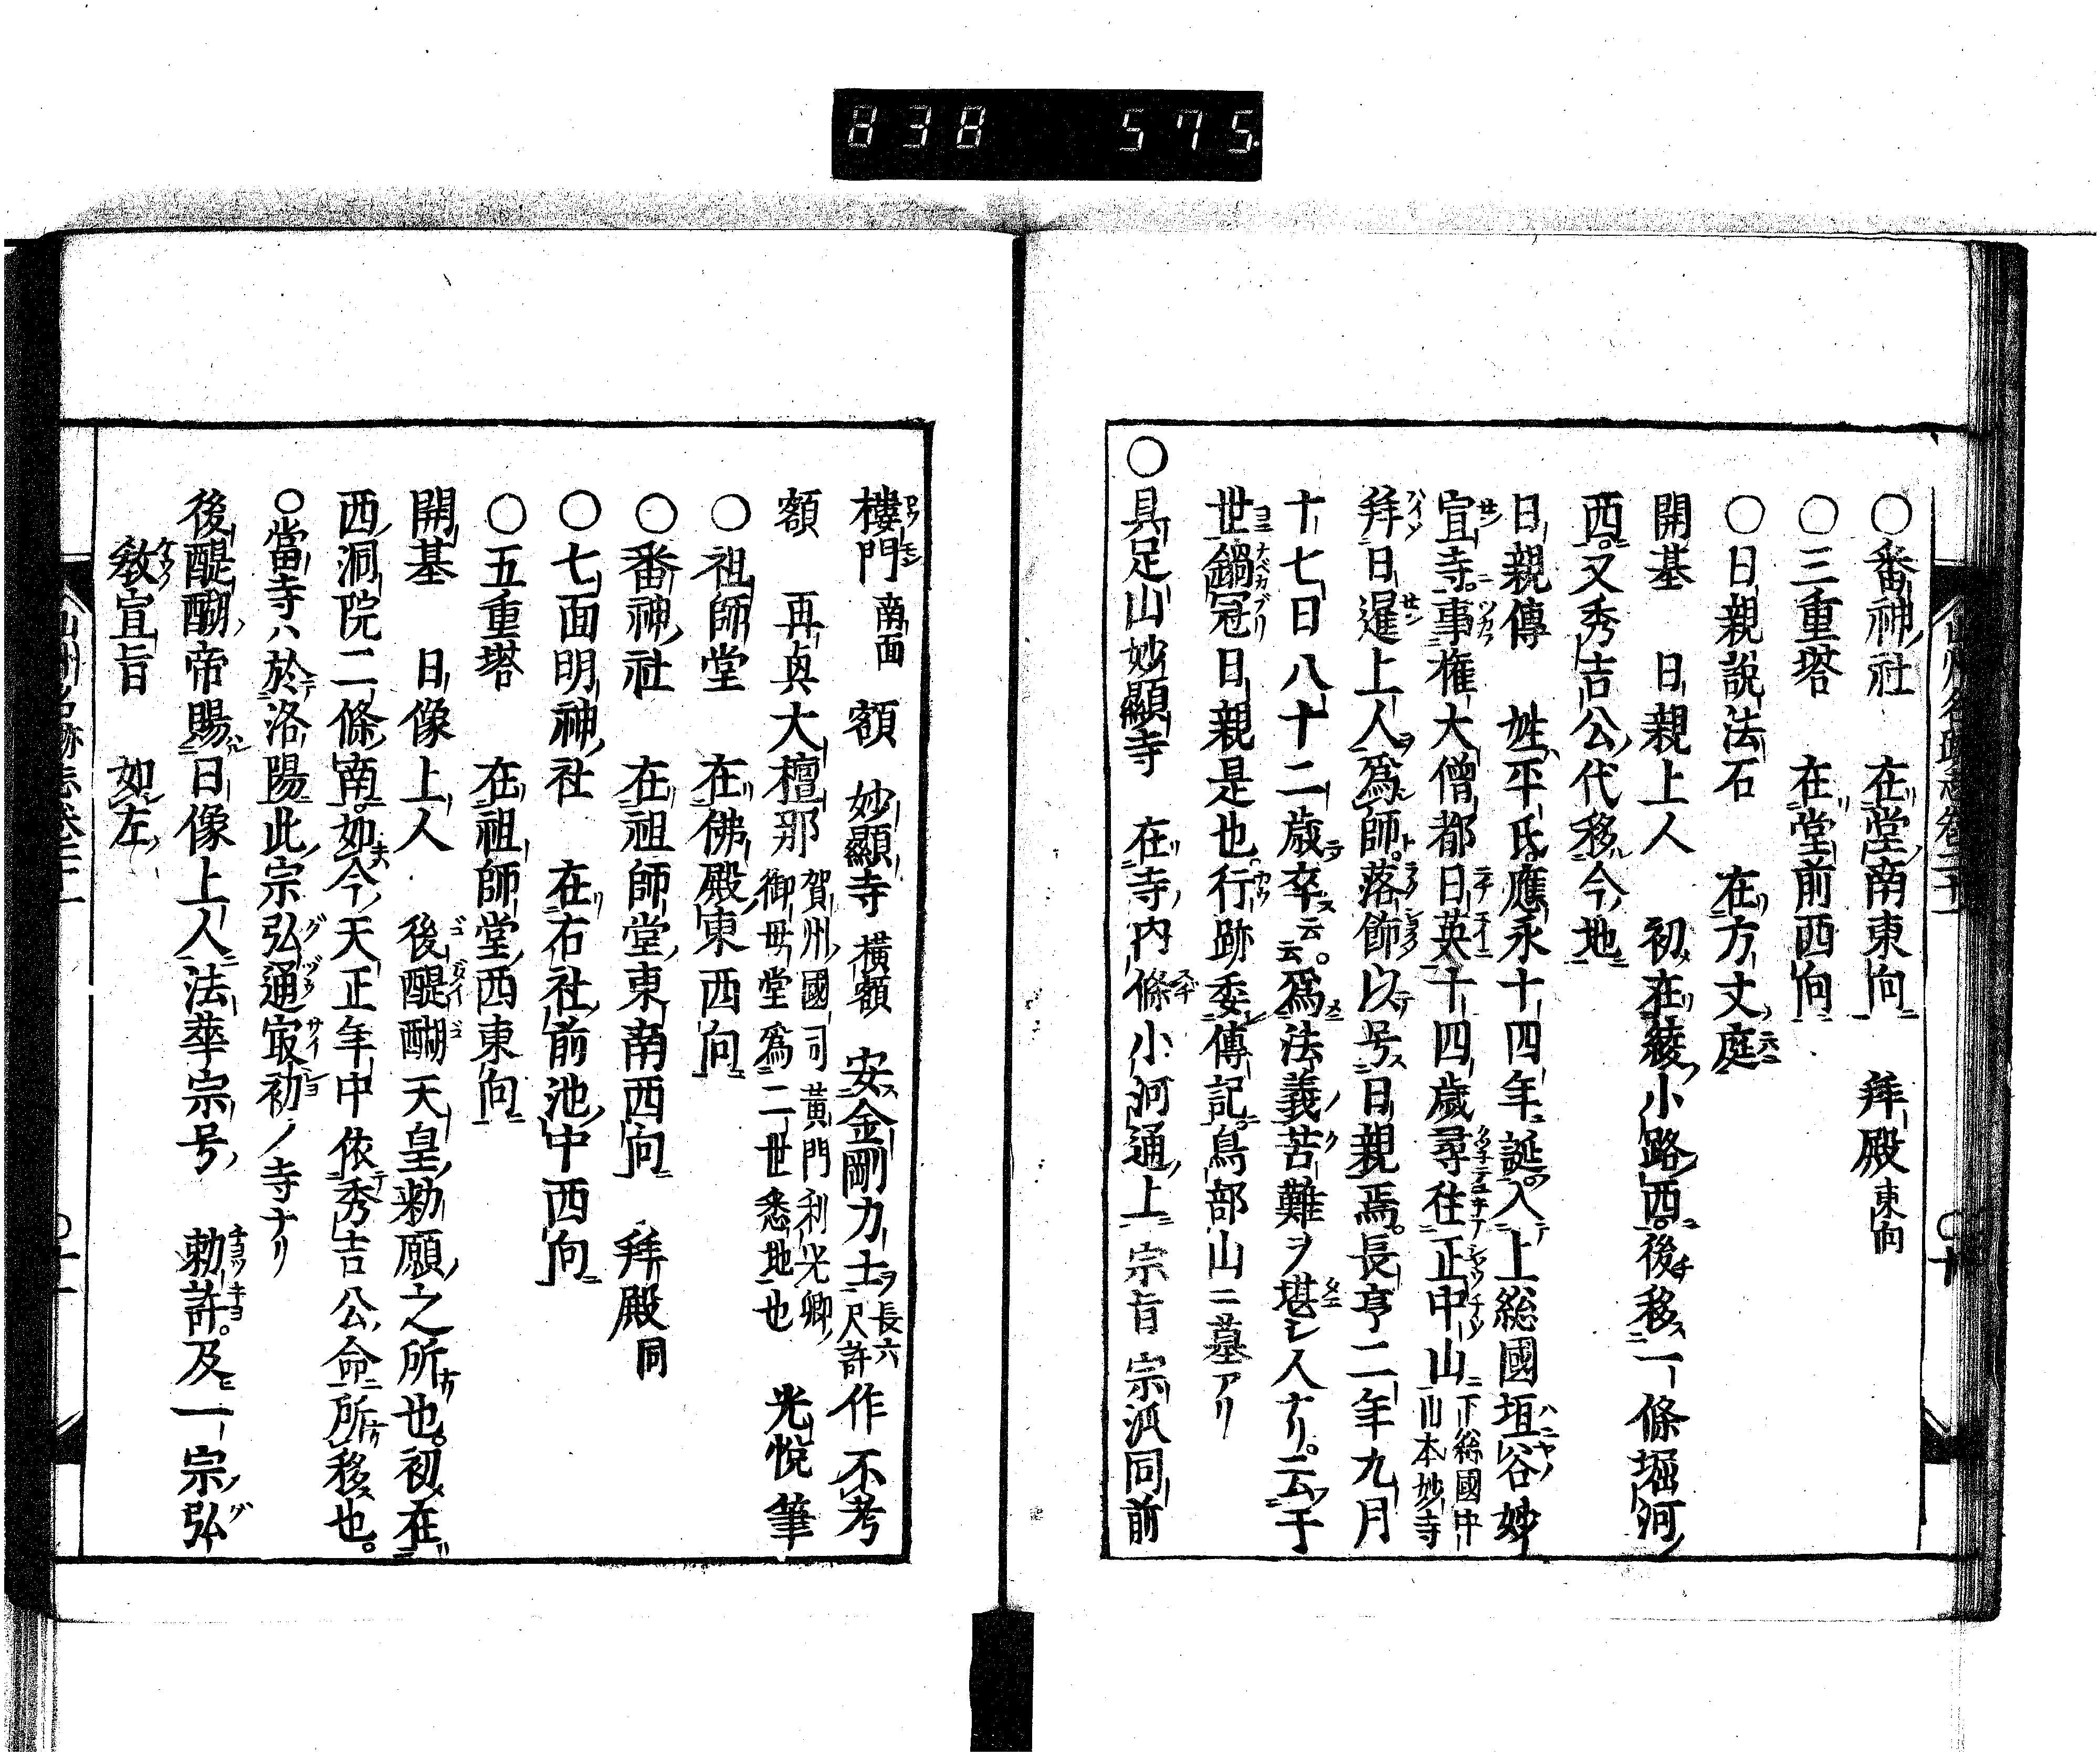 838 575
○番神社 在堂南東向 拜殿東向
○三重塔 在堂前西向
○日親説法石 在方丈庭
開基 日親上人 初在綾小路西。後移一條堀河
西。又秀吉公代移今地
日親傳 姓平氏。應永十四年誕入上総國垣谷妙
宣寺。事権大僧都日英十四歳尋往正中山下総國中山本妙寺
拜日暹上人為師。落飾以号日親焉。長亨二年九月
十七日八十二歳卒云云。為法義苦難ヲ堪シ人ナリ。云于
世鍋冠日親是也。行跡委傳記。鳥部山ニ墓アリ
○具足山妙顯寺 在寺内條小河通上 宗旨 宗派同前
樓門南面 額 妙顯寺横額 安金剛力士長六尺許作不考
額 再興大檀那賀州國司黄門利光卿御母堂為二世悉地也 光悦筆
○祖師堂 在佛殿東西向
○番神社 在祖師堂東南西向 拜殿同
○七面明神社 在右社前池中西向
○五重塔 在祖師堂西東向
開基 日像上人 後醍醐天皇勅願之所也。初在
西洞院二條南。如今天正年中依秀吉公命所移也。
○當寺ハ於洛陽此宗弘通㝡初ノ寺ナリ
後醍醐帝賜日像上人法華宗号 勅許。及一宗弘
教宣旨 如左